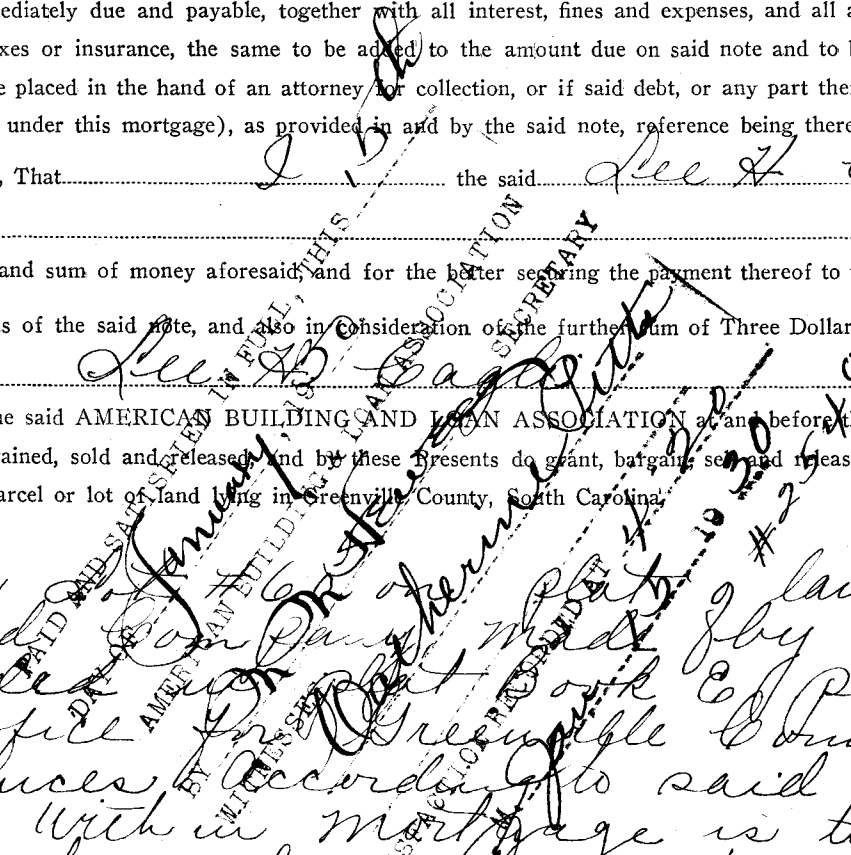 mediately due and payable, together with all interest, fines and expenses, and all a
xes or insurance, the same to be added to the amount due on said note and to b
e placed in the hand of an attorney for collection, or if said debt, or any part ther
under this mortgage), as provided in and by the said note, reference being there
, That I the said Lee H
and sum of money aforesaid, and for the better securing the payment thereof to
s of the said note, and also in consideration of the further sum of Three Dollar
Lee H
he said AMERICAN BUILDING AND LOAN ASSOCIATION at and before th
ained, sold and released, and by these Presents do grant, bargain, sell and releas
arcel or lot of land lying in Greenville County, South Carolina,
Lot #6 on Plat of
Company made by
Plat Book E,
fice for Greenville
according to said
Within mortgage is
PAID AND SATISFIED IN FULL, THIS 15th
DAY OF January, 1930
AMERICAN BUILDING & LOAN ASSOCIATION
BY SECRETARY
WITNESSES
Catherine
RECORDED AT 4:20
Jan 15 1930